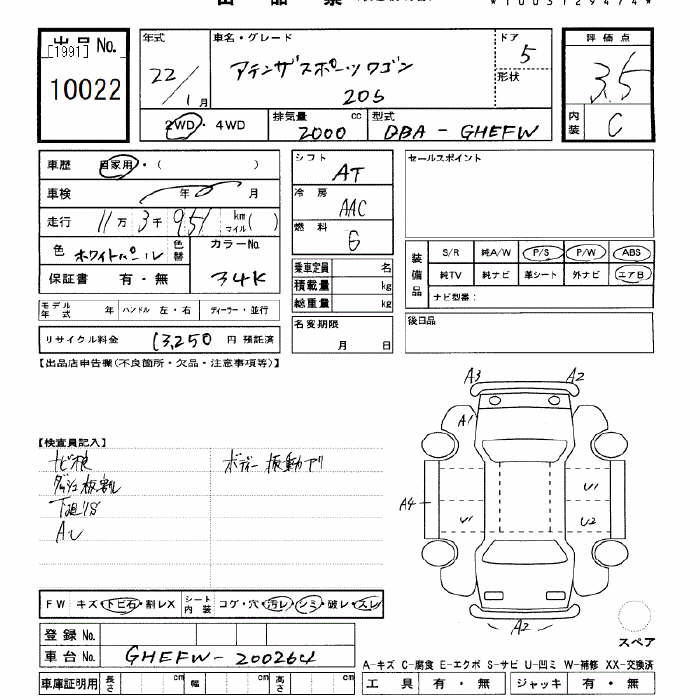 [1991]
出品 No.
10022
年式
22/1月
車名・グレード
アテンザスポーツワゴン
20S
ドア
5
形状
評価点
3.5
内装
C
2WD・4WD
排気量 cc
2000
型式
DBA-GHEFW
車歴 自家用・( )
車検 年 月
走行 11万 3千 951 km マイル( )
色 ホワイトパール 色替
カラーNo.
34K
保証書 有・無
モデル年式 年 ハンドル 左・右 ディーラー・並行
リサイクル料金 13,250 円 預託済
シフト
AT
冷房
AAC
燃料
G
乗車定員 名
積載量 kg
総重量 kg
名変期限
月 日
セールスポイント
装備品
S/R 純A/W P/S P/W ABS
純TV 純ナビ 革シート 外ナビ エアB
ナビ型番:
後日品
【出品店申告欄(不良箇所・欠品・注意事項等)】
【検査員記入】
ダッシュ板割レ
下廻りS
AU
ボディー振動アリ
A3 A2
A1
A4
U1
U1
U2
A2
FW キズ・トビ石・割レX シート内装 コゲ・穴・汚レ・シミ・破レ・スレ
登録 No.
車台 No. GHEFW-200264
車庫証明用 長さ cm 幅 cm 高さ cm
スペア
A-キズ C-腐食 E-エクボ S-サビ U-凹ミ W-補修 XX-交換済
工具 有・無 ジャッキ 有・無